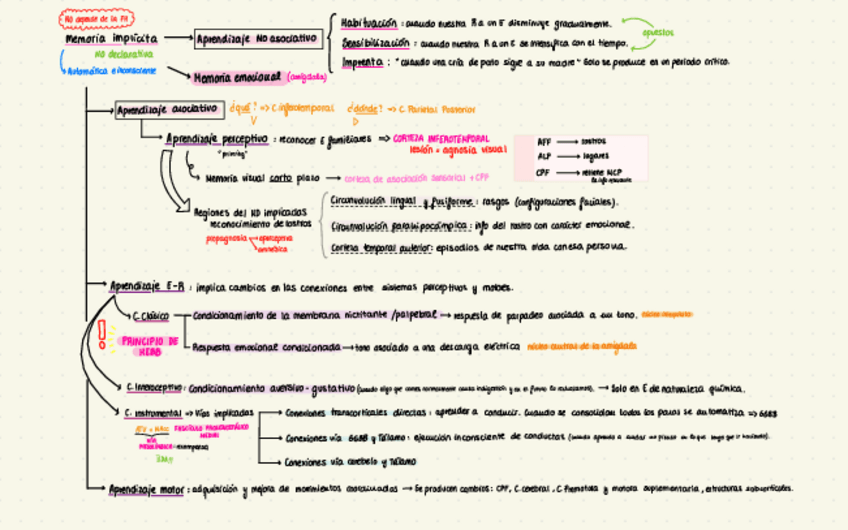 No depende de la FH
Memoria implícita → Aprendizaje No asociativo
No declarativa
Automática e inconsciente
Habituación : cuando nuestra R a un E disminuye gradualmente.
Sensibilización : cuando nuestra R a un E se intensifica con el tiempo.
opuestos
Impronta : "cuando una cría de pato sigue a su madre" Solo se produce en un periodo crítico.
Memoria emocional (amígdala)
Aprendizaje asociativo ¿qué? => C. inferotemporal ¿dónde? => C. Parietal Posterior
V D
Aprendizaje perceptivo : reconocer E familiares => CORTEZA INFEROTEMPORAL
"priming"
lesión = agnosia visual
AFF → rostros
ALP → lugares
CPF → retiene MCP
Memoria visual corto plazo → corteza de asociación sensorial + CPF
Regiones del HD implicadas
reconocimiento de rostros
apperceptiva
Circunvolución lingual y fusiforme : rasgos (configuraciones faciales).
Circunvolución parahipocámpica : info del rostro con carácter emocional.
Corteza temporal anterior : episodios de nuestra vida con esa persona.
Aprendizaje E-R : implica cambios en las conexiones entre sistemas perceptivos y motores.
C. Clásico
Condicionamiento de la membrana nictitante /palpebral → respuesta de parpadeo asociada a un tono.
Respuesta emocional condicionada → tono asociado a una descarga eléctrica núcleo central de la amígdala
!
PRINCIPIO DE
HEBB
C. Interoceptivo : Condicionamiento aversivo - gustativo → Solo en E de naturaleza química.
C. Instrumental → Vías implicadas
FASCÍCULO PROSENCEFÁLICO
MEDIAL
VÍA
Conexiones transcorticales directas : aprender a conducir. Cuando se consolidan todos los pasos se automatiza => GGBB
Conexiones vía GGBB y Tálamo : ejecución inconsciente de conductas
Conexiones vía cerebelo y Tálamo
Aprendizaje motor : adquisición y mejora de movimientos coordinados → Se producen cambios : CPF, C. cerebral, C. Premotora y motora suplementaria, estructuras subcorticales.